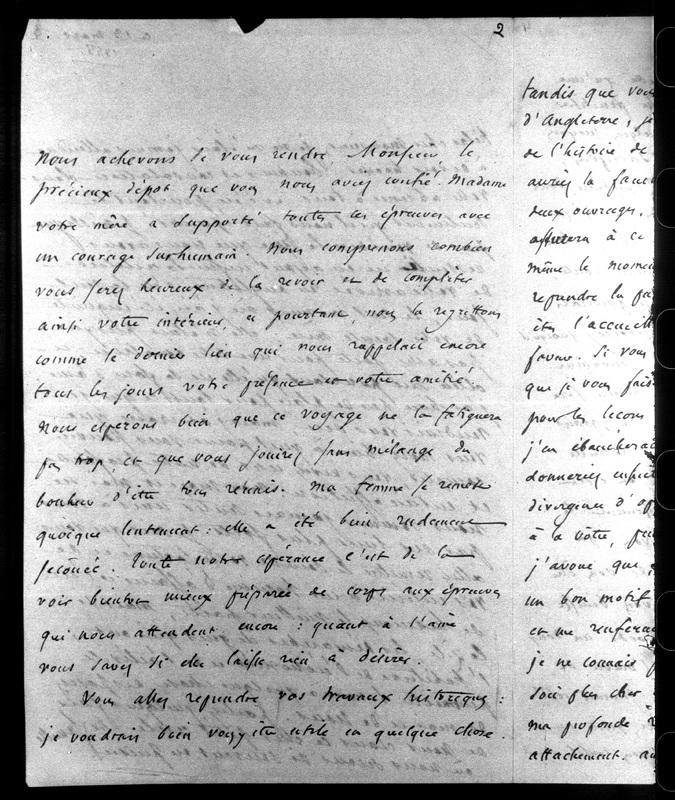 2
Nous achevons de vous rendre, Monsieur, le
précieux dépot que vous nous avez confié. Madame
votre mère a supporté toutes les épreuves avec
un courage surhumain. Nous comprenons combien
vous serez heureux de la revoir et de compléter
ainsi votre intérieur, et pourtant, nous la regrettons
comme le dernier lien qui nous rappelait encore
tous les jours votre présence et votre amitié.
Nous espérons bien que ce voyage ne la fatiguera
pas trop, et que vous jouirez sans mélange du
bonheur d'être tous réunis. Ma femme se remet
quoique lentement : elle a été bien rudement
secouée. Toute notre espérance c'est de la
voir bientot mieux préparée de corps aux épreuves
qui nous attendent encore : quant à l'âme
vous savez si elle laisse rien à désirer.
Vous allez reprendre vos travaux historiques :
je voudrais bien vous y être utile en quelque chose.
tandis que vous
d'Angleterre, je
de l'histoire de
auriez la
deux ouvrages.
à ce
même le momen
reprendre la
êtes l'accueill
faveur. Si vous
que je vous fais
pour les leçons
j'en ébaucherai
donneriez ensuite
divergence d'op
à la vôtre,
j'avoue que
un bon motif
et me renferme
je ne connais
soit plus cher
ma profonde
attachement.